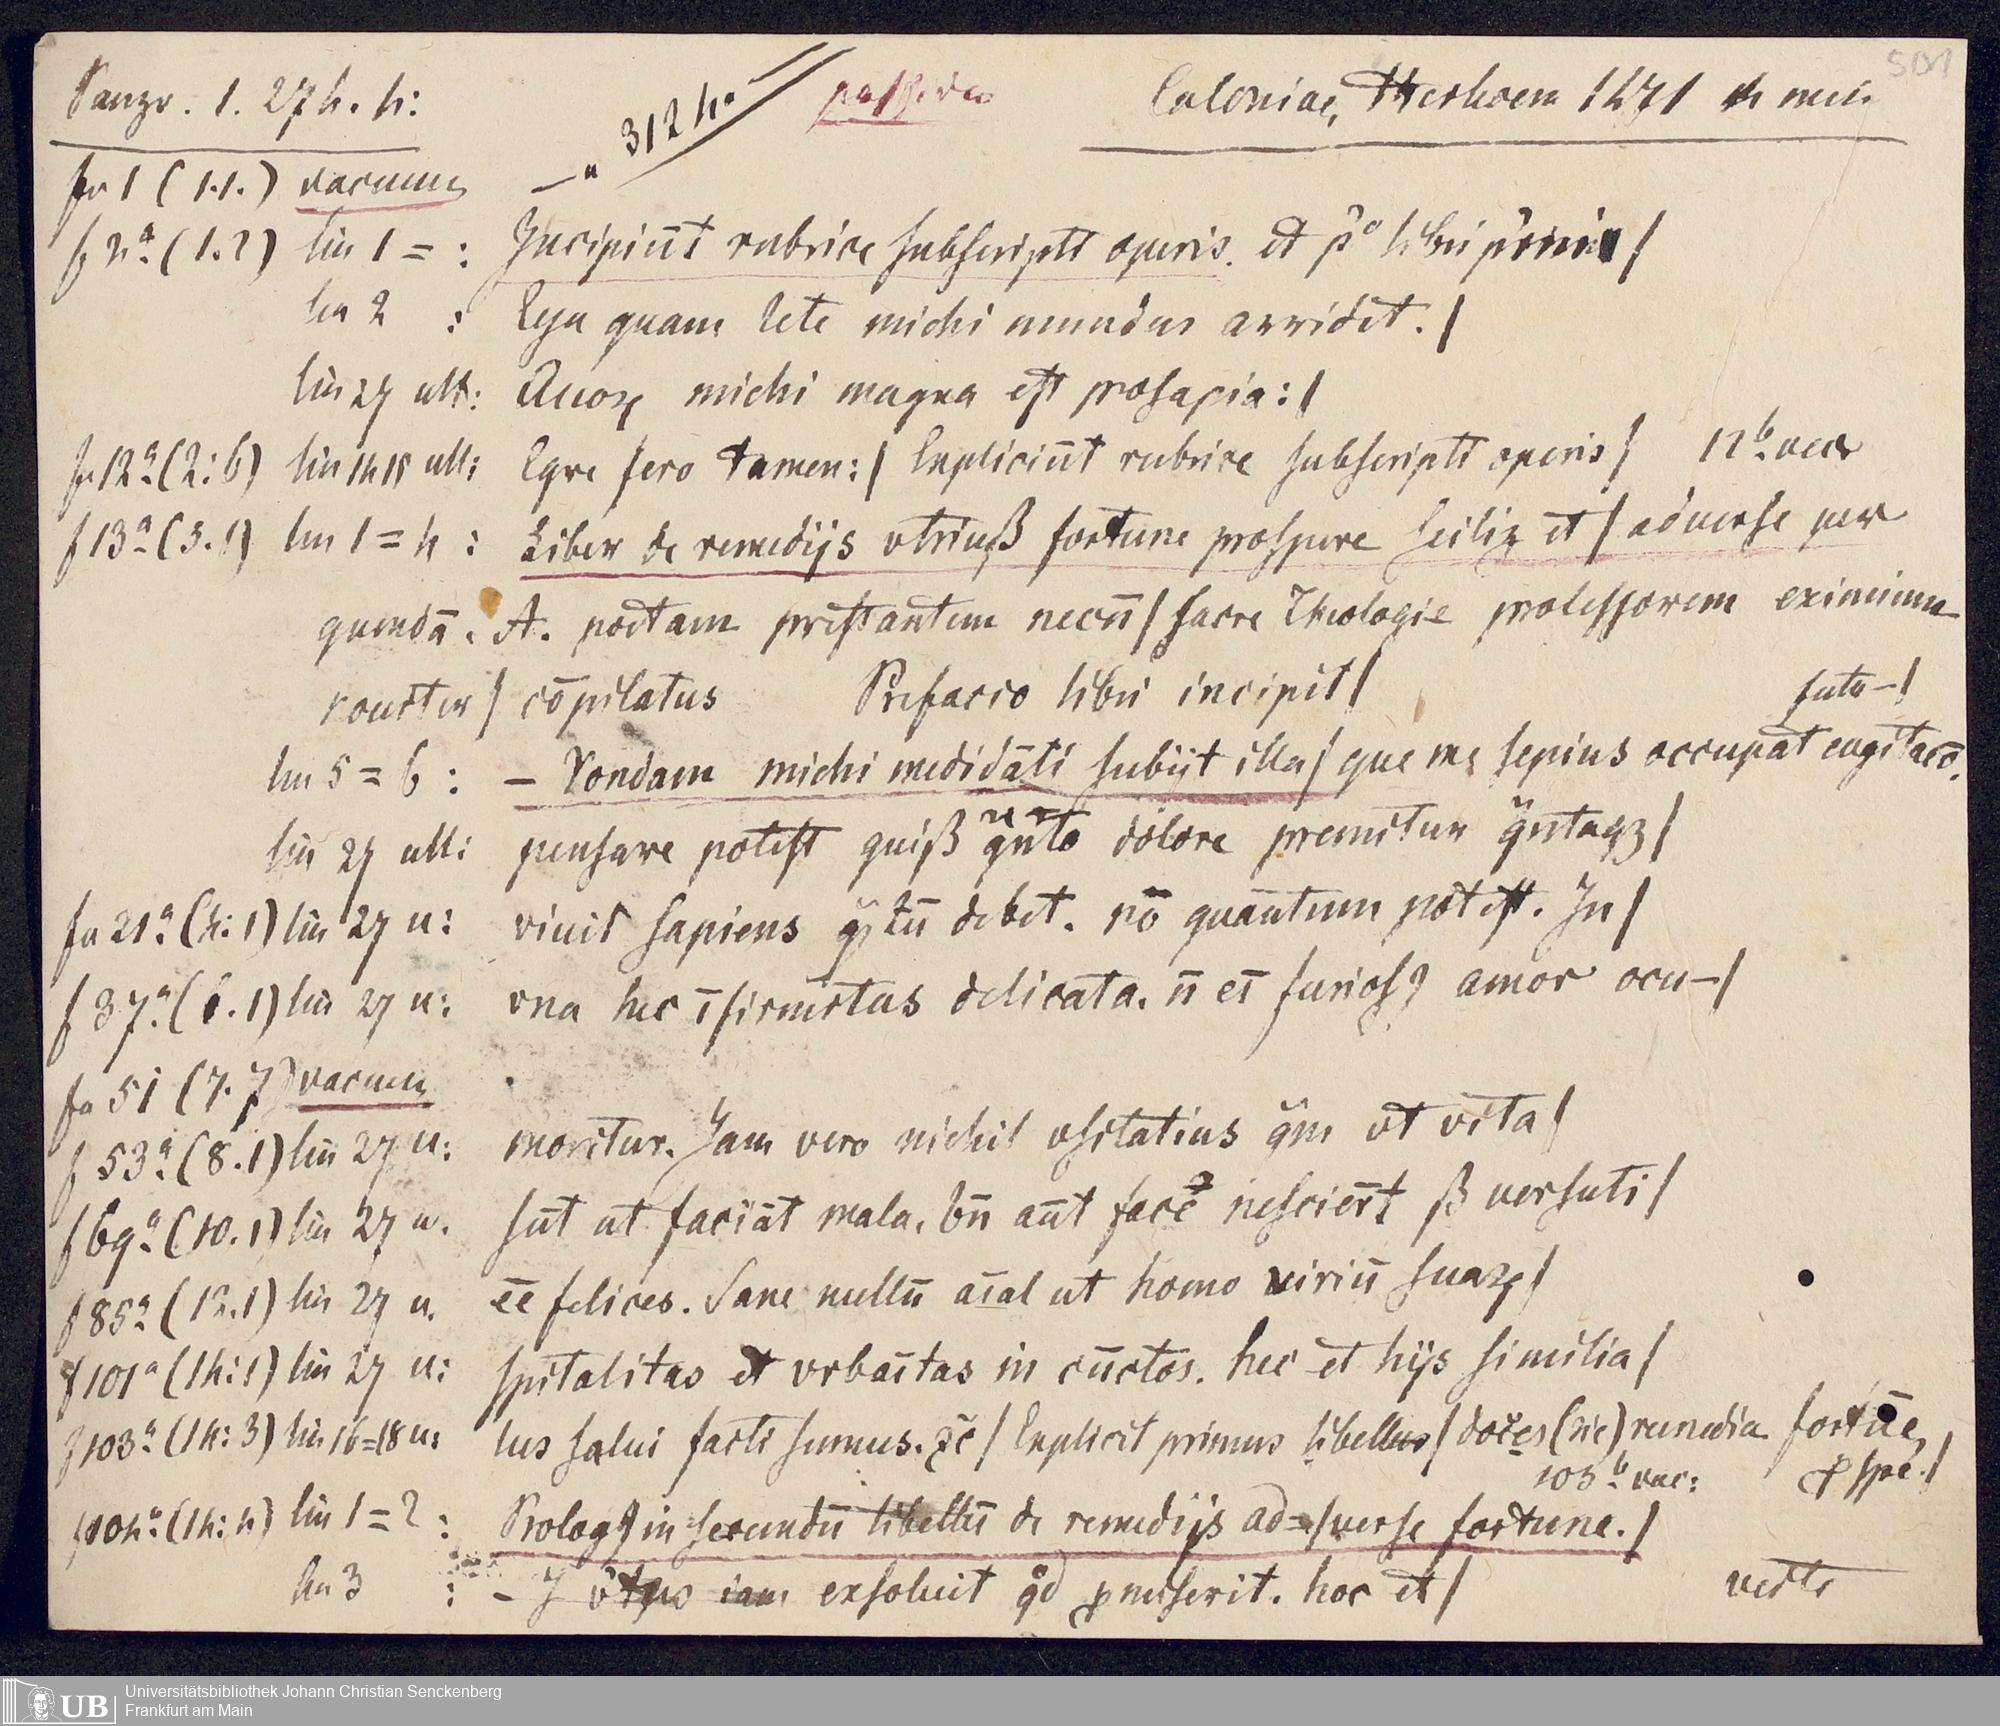 Panzr. 1. 274. 4:
312 h.
Coloniae, Therhoern 1471 4 min
5[D]1
fo 1 (1.1.) vacuum
f 2ª (1.2) lin 1 = : Incipiūt rubrice subscripti operis. et p° libri primi /
lin 2 : Ego quam lete michi mundus arridet. /
lin 27 ult: Auoꝝ michi magna est prosapia: /
fo 12ª (2:6) lin 14 15 ult: Egre fero tamen: / Expliciūt rubrice subscripti operis / 12b vac
f 13ª (3.1) lin 1 = 4 : Liber de remedijs vtriusqꝫ fortune prospere scilicꝫ et / aduerse per
quendā. A. poetam prestantem necū / sacre Theologie professorem eximium
nouiter / cōpilatus Prefacio libri incipit /
futu – /
lin 5 = 6 : – Nondam michi meditāti subijt illa / que me sepius occupat cogitacō.
lin 27 ult: pensare potest quisqꝫ q̄nto dolore premitur q̄ntaqꝫ /
fo 21ª (4:1) lin 27 u: viuit sapiens qꝫtū debet. nō quantum potest. In /
f 37ª (6.1) lin 27 u: vna hec īfirmitas delicata. n̄ eī furiosꝯ amor ocu – /
fo 51 (7.7) vacuum
f 53ª (8.1) lin 27 u: moritur. Jam vero nichil vsitatius q̄m vt vita /
f 69ª (10.1) lin 27 u. sūt ut faciāt mala. bn̄ aūt facē nescierūt sꝫ versuti /
f 85ª (12.1) lin 27 u. ēē felices. Sane nullū aīal ut homo viriū suaꝝ /
f 101ª (14:1) lin 27 u: spitalitas et vrbaītas in cūctos. hec et hijs similia /
f 103ª (14:3) lin 16 = 18 u: lus salui facti sumus. ꝛc̄ / Explicit primus libellus / docēs (sic) remedia fortūe
103b vac: ꝓspe. /
f 104ª (14:4) lin 1 = 2 : Prologꝯ in secundū libellū de remedijs ad = / uerse fortune. /
lin 3 : – iam exsoluit qd̄ ꝓmiserit. hoc et / verte
Universitätsbibliothek Johann Christian Senckenberg
UB
Frankfurt am Main